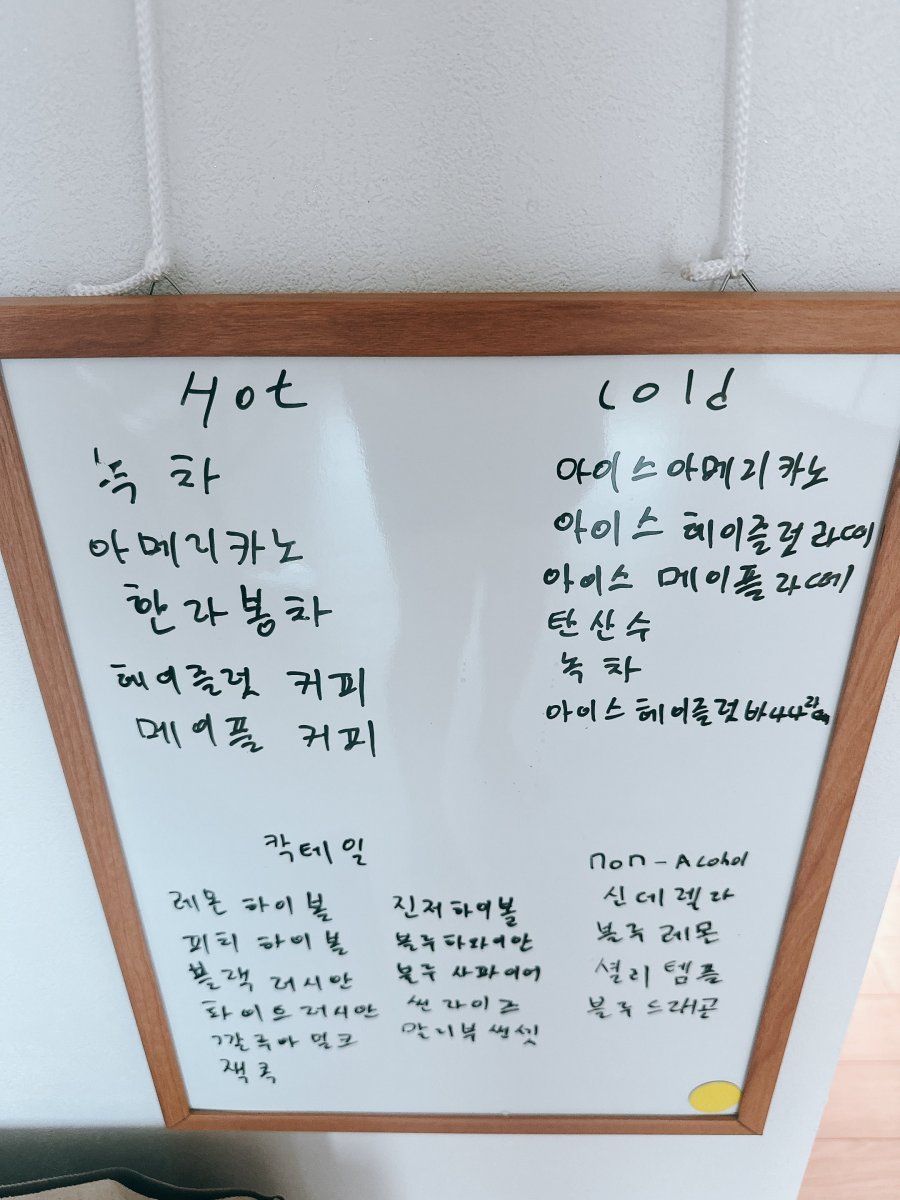 Hot
녹차
아메리카노
한라봉차
헤이즐럿 커피
메이플 커피
Cold
아이스아메리카노
아이스 헤이즐럿라떼
아이스 메이플라떼
탄산수
녹차
아이스헤이즐럿바나나라떼
칵테일
레몬 하이볼
피치 하이볼
블랙 러시안
화이트러시안
깔루아 밀크
잭콕
진저하이볼
블루하와이안
블루 사파이어
썬라이즈
말리부쌘셋
non-Acohol
신데렐라
블루레몬
셜리템플
블루드래곤